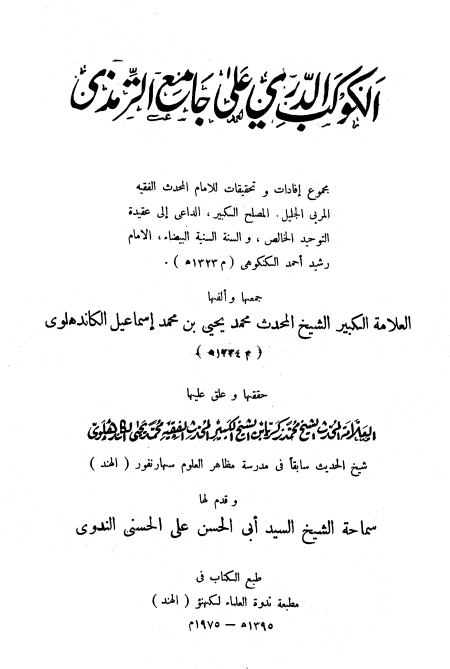 الكوكب الدري على جامع الترمذي
مجموع إفادات و تحقيقات للامام المحدث الفقيه
المربى الجليل. المصلح الكبير، الداعى إلى عقيدة
التوحيد الخالص، و السنة السنية البيضاء، الامام
رشيد أحمد الكنكوهى (م ١٣٢٣ھ).
جمعها و ألفها
العلامة الكبير الشيخ المحدث محمد يحيى بن محمد إسماعيل الكاندهلوى
(م ١٣٣٤ھ)
حققها و علق عليها
العلامة المحدث الشيخ محمد زكريا بن الشيخ الكبير المحدث الفقيه محمد يحيى الكاندهلوي
شيخ الحديث سابقاً فى مدرسة مظاهر العلوم سهارنفور (الهند)
و قدم لها
سماحة الشيخ السيد أبى الحسن على الحسنى الندوى
طبع الكتاب فى
مطبعة ندوة العلماء لكهنؤ (الهند)
١٣٩٥ھ — ١٩٧٥م